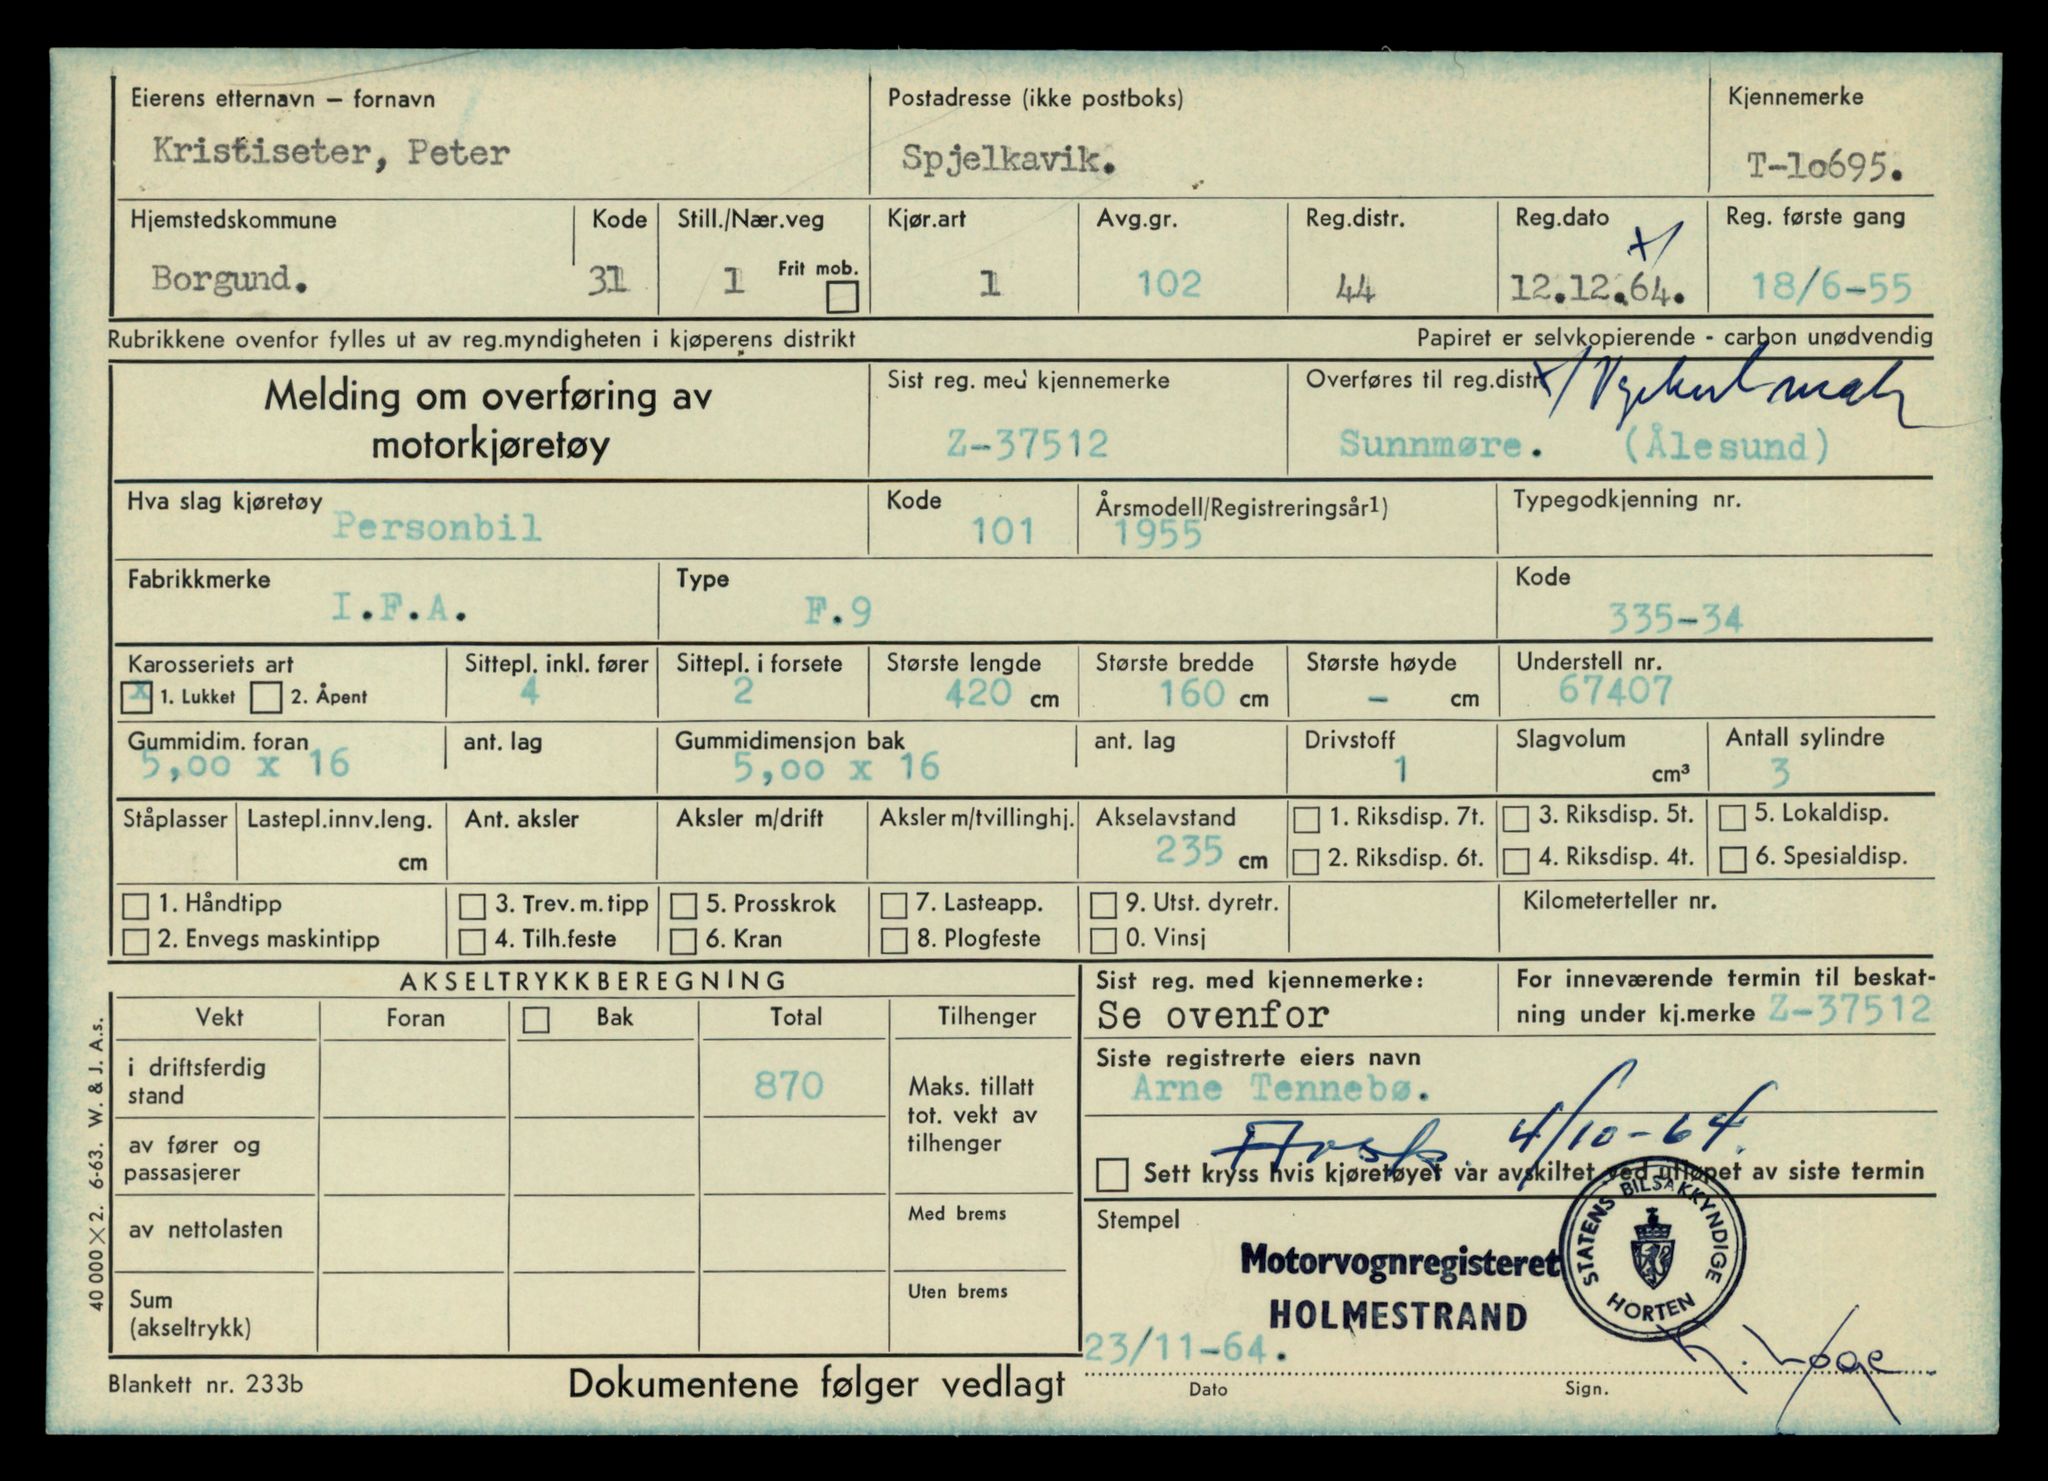 Eierens etternavn – fornavn Postadresse (ikke postboks) Kjennemerke
Kristiseter, Peter Spjelkavik. T-lo695.
Hjemstedskommune Kode Still./Nær.veg Kjør.art Avg.gr. Reg.distr. Reg.dato Reg. første gang
Borgund. 31 1 Frit mob. 1 102 44 12.12.64. x/ 18/6-55
Rubrikkene ovenfor fylles ut av reg.myndigheten i kjøperens distrikt Papiret er selvkopierende - carbon unødvendig
Melding om overføring av
motorkjøretøy
Sist reg. med kjennemerke Overføres til reg.distr. x/
Z-37512 Sunnmøre. (Ålesund)
Hva slag kjøretøy Kode Årsmodell/Registreringsår1) Typegodkjenning nr.
Personbil 101 1955
Fabrikkmerke Type Kode
I.F.A. F.9 335-34
Karosseriets art Sittepl. inkl. fører Sittepl. i forsete Største lengde Største bredde Største høyde Understell nr.
x 1. Lukket 2. Åpent 4 2 420 cm 160 cm - cm 67407
Gummidim. foran ant. lag Gummidimensjon bak ant. lag Drivstoff Slagvolum Antall sylindre
5,00 x 16 5,00 x 16 1 cm³ 3
Ståplasser Lastepl.innv.leng. Ant. aksler Aksler m/drift Aksler m/tvillinghj. Akselavstand 1. Riksdisp. 7t. 3. Riksdisp. 5t. 5. Lokaldisp.
cm 235 cm 2. Riksdisp. 6t. 4. Riksdisp. 4t. 6. Spesialdisp.
1. Håndtipp 3. Trev. m. tipp 5. Prosskrok 7. Lasteapp. 9. Utst. dyretr. Kilometerteller nr.
2. Envegs maskintipp 4. Tilh.feste 6. Kran 8. Plogfeste 0. Vinsj
AKSELTRYKKBEREGNING
Vekt Foran Bak Total Tilhenger
i driftsferdig
stand 870
Maks. tillatt
tot. vekt av
tilhenger
av fører og
passasjerer
av nettolasten Med brems
Sum
(akseltrykk) Uten brems
Sist reg. med kjennemerke: For inneværende termin til beskat-
Se ovenfor ning under kj.merke Z-37512
Siste registrerte eiers navn
Arne Tennebø.
4/10-64.
Sett kryss hvis kjøretøyet var avskiltet ved utløpet av siste termin
Stempel
Motorvognregisteret
HOLMESTRAND
STATENS BILSAKKYNDIGE
HORTEN
23/11-64.
Dato Sign.
40 000 X 2. 6-63. W. & J. A.s.
Blankett nr. 233b Dokumentene følger vedlagt